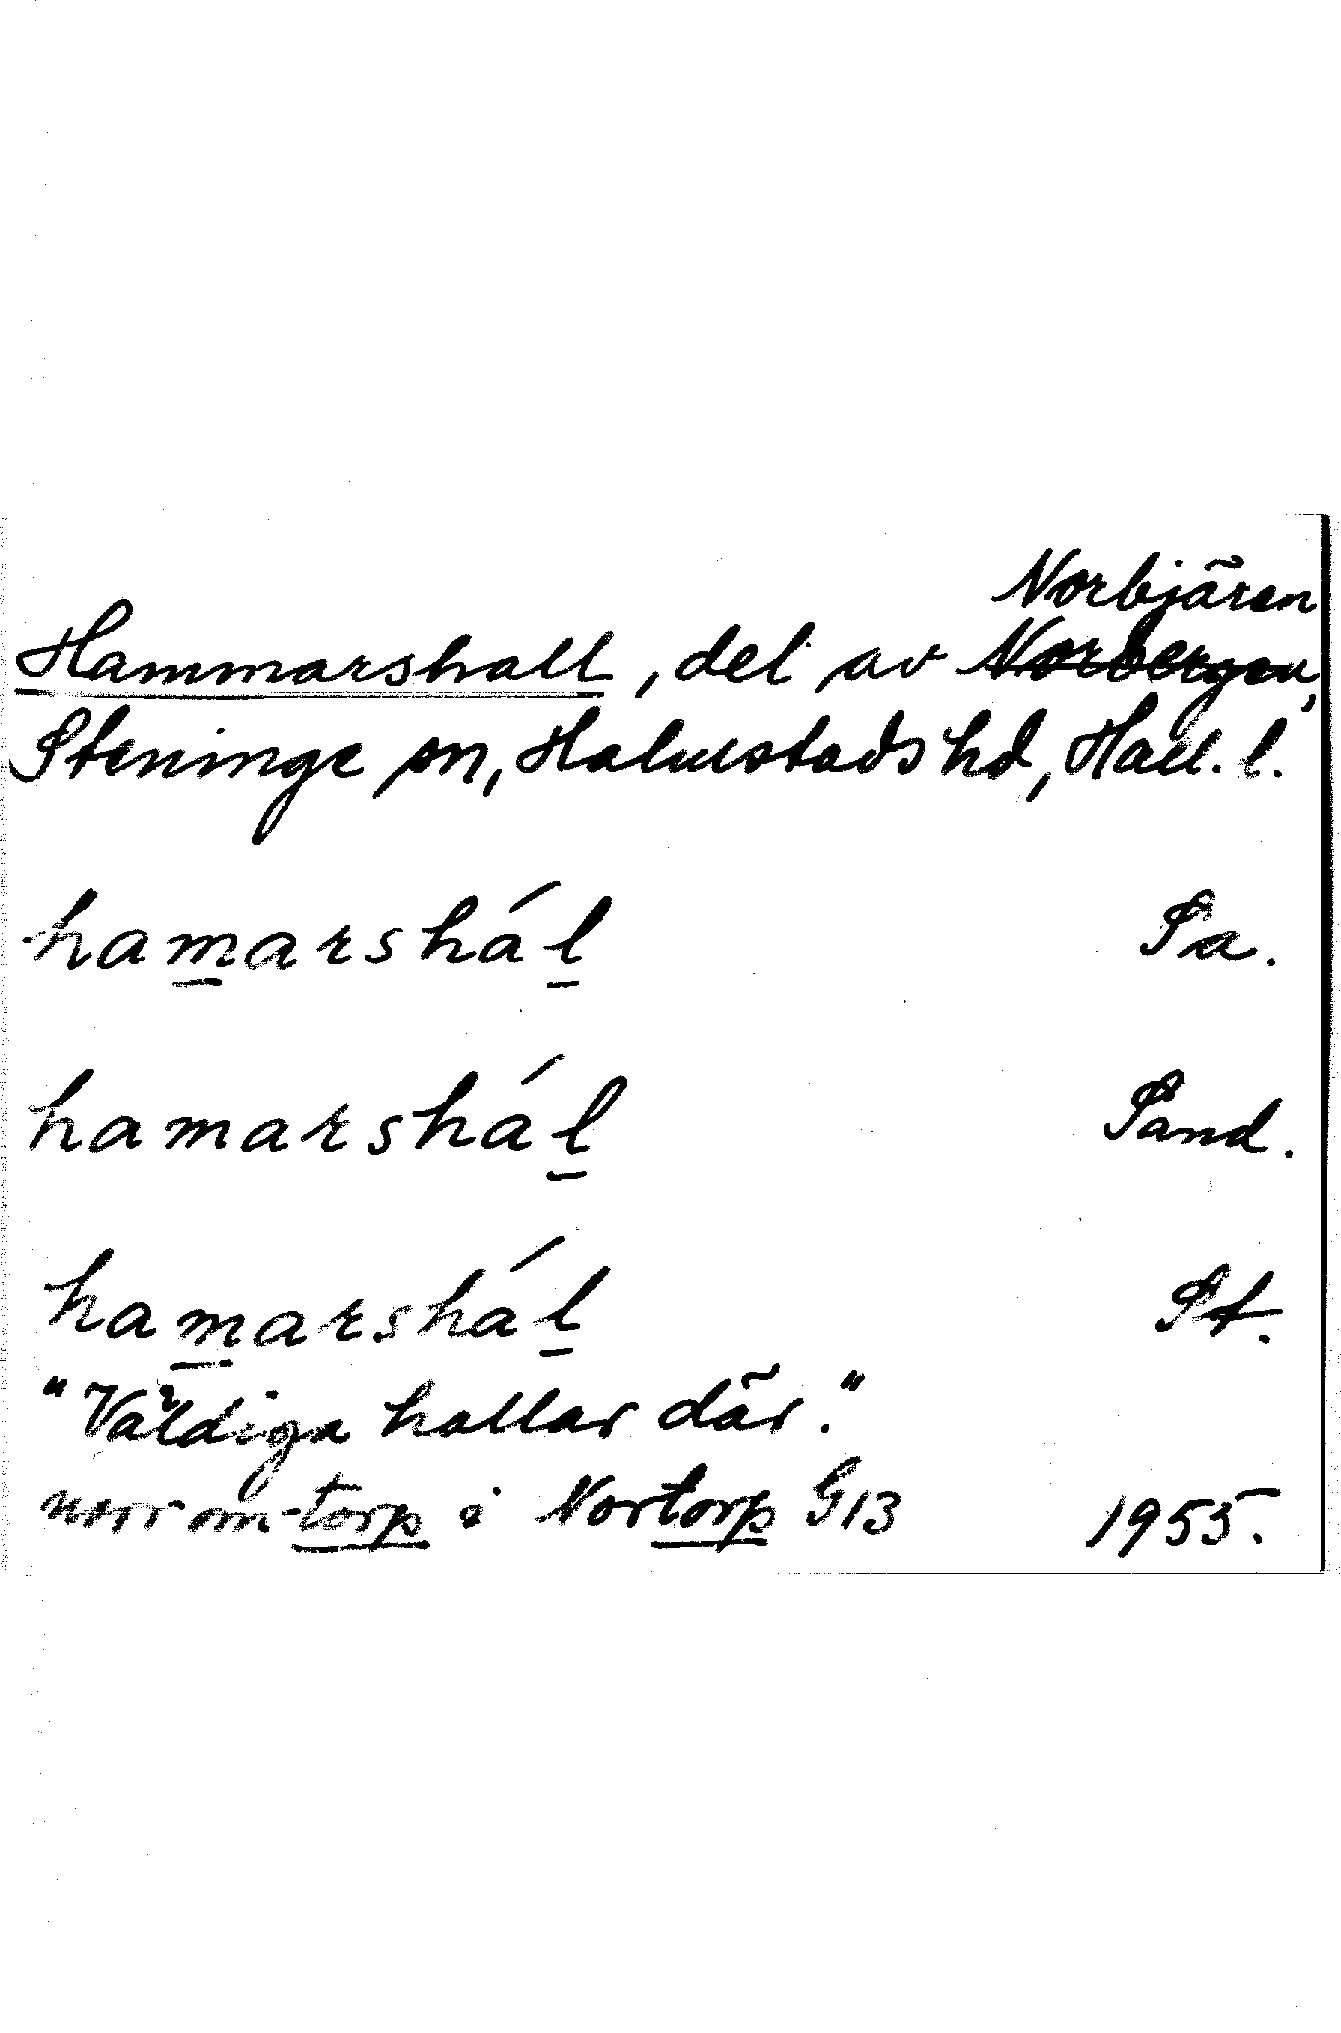 Norbjären
Hammarshall, del av Norbergen,
Steninge sn, Halmstads hd, Hall. l.
hamarshál Sa.
hamarshál Sand.
hamarshál St.
"Väldiga hallar där."
norr om -torp i Nortorp G13 1955.